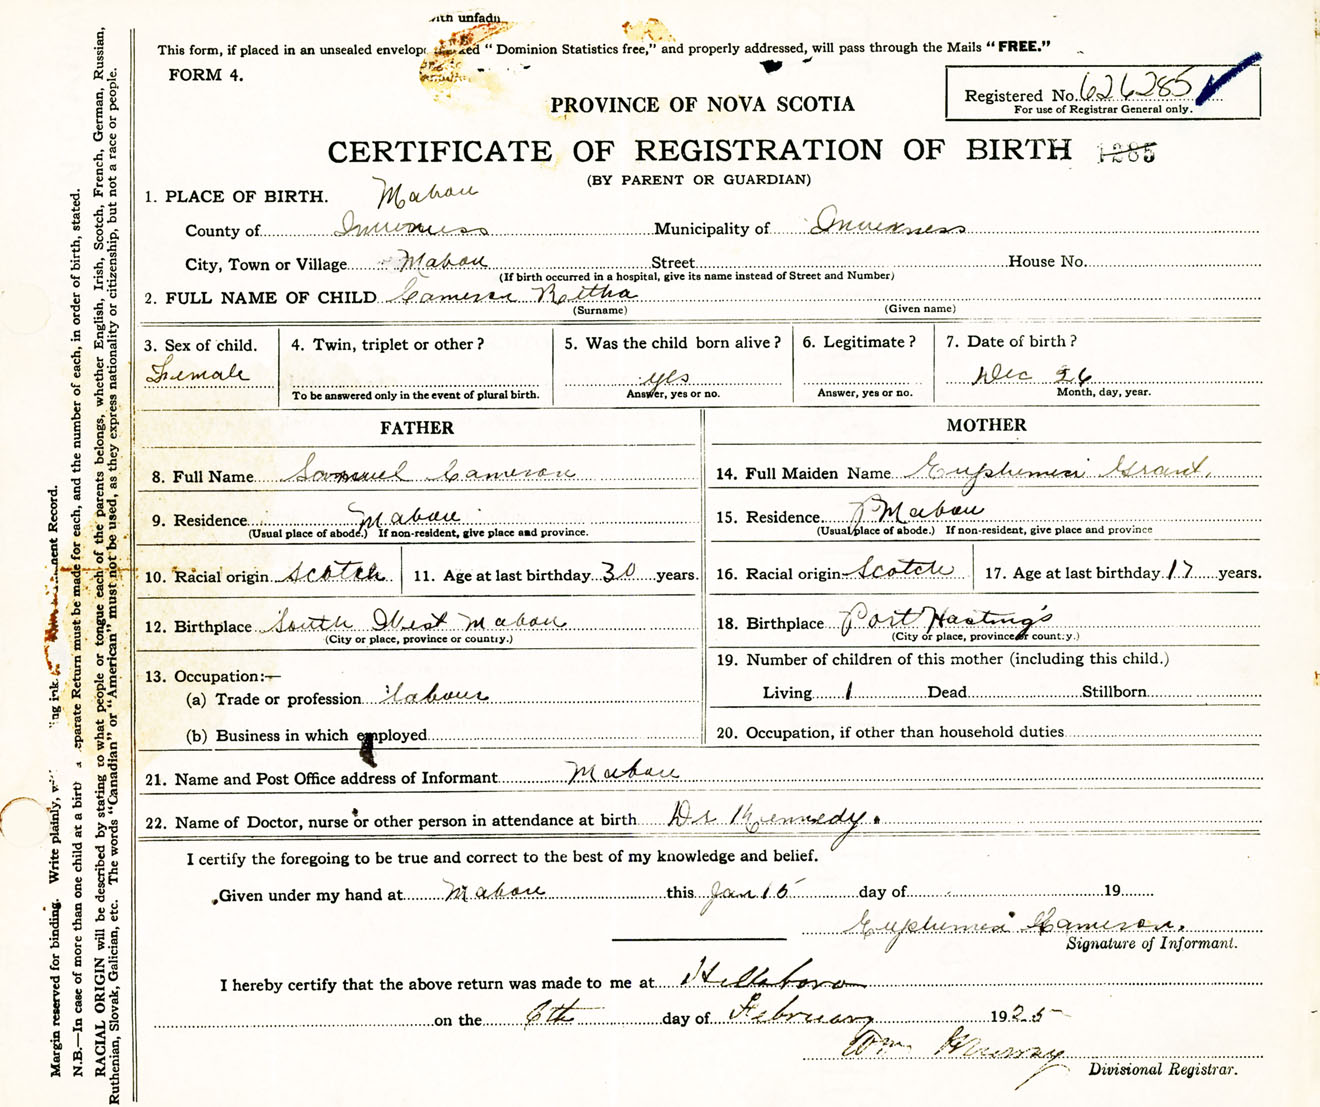 with unfadi
This form, if placed in an unsealed envelope marked "Dominion Statistics free," and properly addressed, will pass through the Mails "FREE."
FORM 4.
Registered No. 626285
For use of Registrar General only.
PROVINCE OF NOVA SCOTIA
CERTIFICATE OF REGISTRATION OF BIRTH 1285
(BY PARENT OR GUARDIAN)
1. PLACE OF BIRTH. Mabou
County of Inverness Municipality of Inverness
City, Town or Village Mabou Street House No.
(If birth occurred in a hospital, give its name instead of Street and Number)
2. FULL NAME OF CHILD Cameron Retha
(Surname) (Given name)
3. Sex of child. Female
4. Twin, triplet or other?
To be answered only in the event of plural birth.
5. Was the child born alive? yes
Answer, yes or no.
6. Legitimate?
Answer, yes or no.
7. Date of birth? Dec 26
Month, day, year.
FATHER
8. Full Name Samuel Cameron
9. Residence Mabou
(Usual place of abode.) If non-resident, give place and province.
10. Racial origin Scotch 11. Age at last birthday 30 years.
12. Birthplace South West Mabou
(City or place, province or country.)
13. Occupation:—
(a) Trade or profession labour
(b) Business in which employed
MOTHER
14. Full Maiden Name Euphemia Grant.
15. Residence Mabou
(Usual place of abode.) If non-resident, give place and province
16. Racial origin Scotch 17. Age at last birthday 17 years.
18. Birthplace Port Hasting's
(City or place, province or country.)
19. Number of children of this mother (including this child.)
Living 1 Dead Stillborn
20. Occupation, if other than household duties
21. Name and Post Office address of Informant Mabou
22. Name of Doctor, nurse or other person in attendance at birth Dr Kennedy.
I certify the foregoing to be true and correct to the best of my knowledge and belief.
Given under my hand at Mabou this Jan 15 day of 19
Euphemia Cameron.
Signature of Informant.
I hereby certify that the above return was made to me at Hillsboro
on the 6th day of February 1925
Wm Murray
Divisional Registrar.
Margin reserved for binding. Write plainly, ing ink. nent Record.
N.B.—In case of more than one child at a birth a separate Return must be made for each, and the number of each, in order of birth, stated.
RACIAL ORIGIN will be described by stating to what people or tongue each of the parents belongs, whether English, Irish, Scotch, French, German, Russian,
Ruthenian, Slovak, Galician, etc. The words "Canadian" or "American" must not be used, as they express nationality or citizenship, but not a race or people.